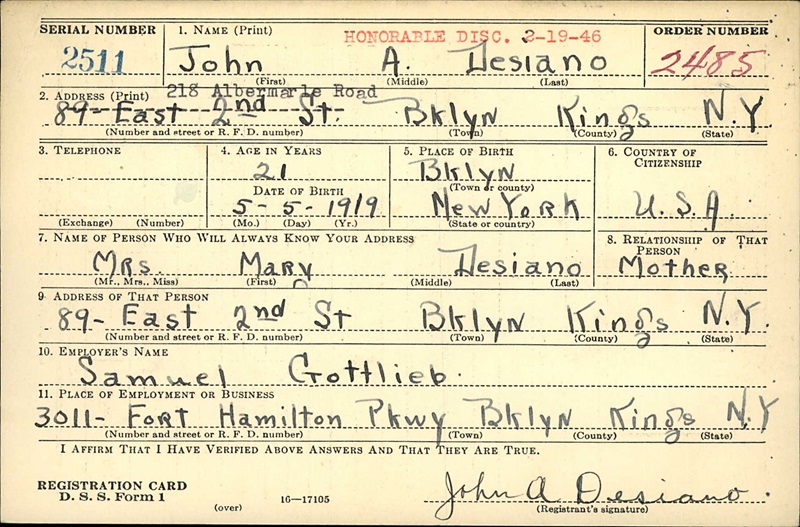 SERIAL NUMBER 1. NAME (Print) HONORABLE DISC. 2-19-46 ORDER NUMBER
2511 John A. Desiano 2485
(First) (Middle) (Last)
2. ADDRESS (Print) 218 Albermarle Road
89- East 2nd St. Bklyn Kings N.Y.
(Number and street or R. F. D. number) (Town) (County) (State)
3. TELEPHONE 4. AGE IN YEARS 5. PLACE OF BIRTH 6. COUNTRY OF
CITIZENSHIP
21 Bklyn
DATE OF BIRTH (Town or county)
5-5-1919 New York U.S.A.
(Exchange) (Number) (Mo.) (Day) (Yr.) (State or country)
7. NAME OF PERSON WHO WILL ALWAYS KNOW YOUR ADDRESS 8. RELATIONSHIP OF THAT
PERSON
Mrs. Mary Desiano Mother
(Mr., Mrs., Miss) (First) (Middle) (Last)
9. ADDRESS OF THAT PERSON
89- East 2nd St Bklyn Kings N.Y.
(Number and street or R. F. D. number) (Town) (County) (State)
10. EMPLOYER'S NAME
Samuel Gottlieb.
11. PLACE OF EMPLOYMENT OR BUSINESS
3011- Fort Hamilton Pkwy Bklyn Kings N.Y
(Number and street or R. F. D. number) (Town) (County) (State)
I AFFIRM THAT I HAVE VERIFIED ABOVE ANSWERS AND THAT THEY ARE TRUE.
REGISTRATION CARD
D. S. S. Form 1 (over) 16-17105 John A Desiano.
(Registrant's signature)